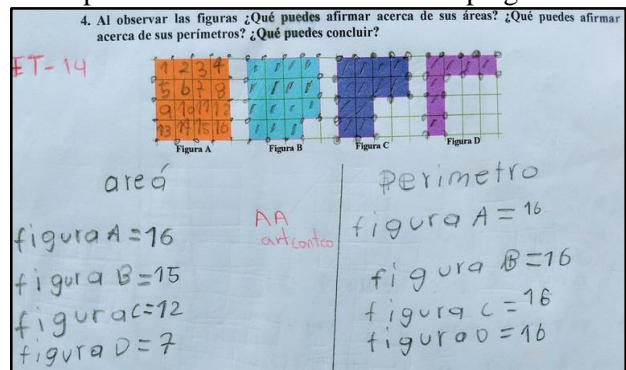 4. Al observar las figuras ¿Qué puedes afirmar acerca de sus áreas? ¿Qué puedes afirmar
acerca de sus perímetros? ¿Qué puedes concluir?
ET-14
1 2 3 4
5 6 7 8
9 10 11 12
13 14 15 16
Figura A Figura B Figura C Figura D
areá
perimetro
AA
figura A = 16
figura B = 15
figura C = 12
figura D = 7
figura A = 16
figura B = 16
figura C = 16
figura D = 16